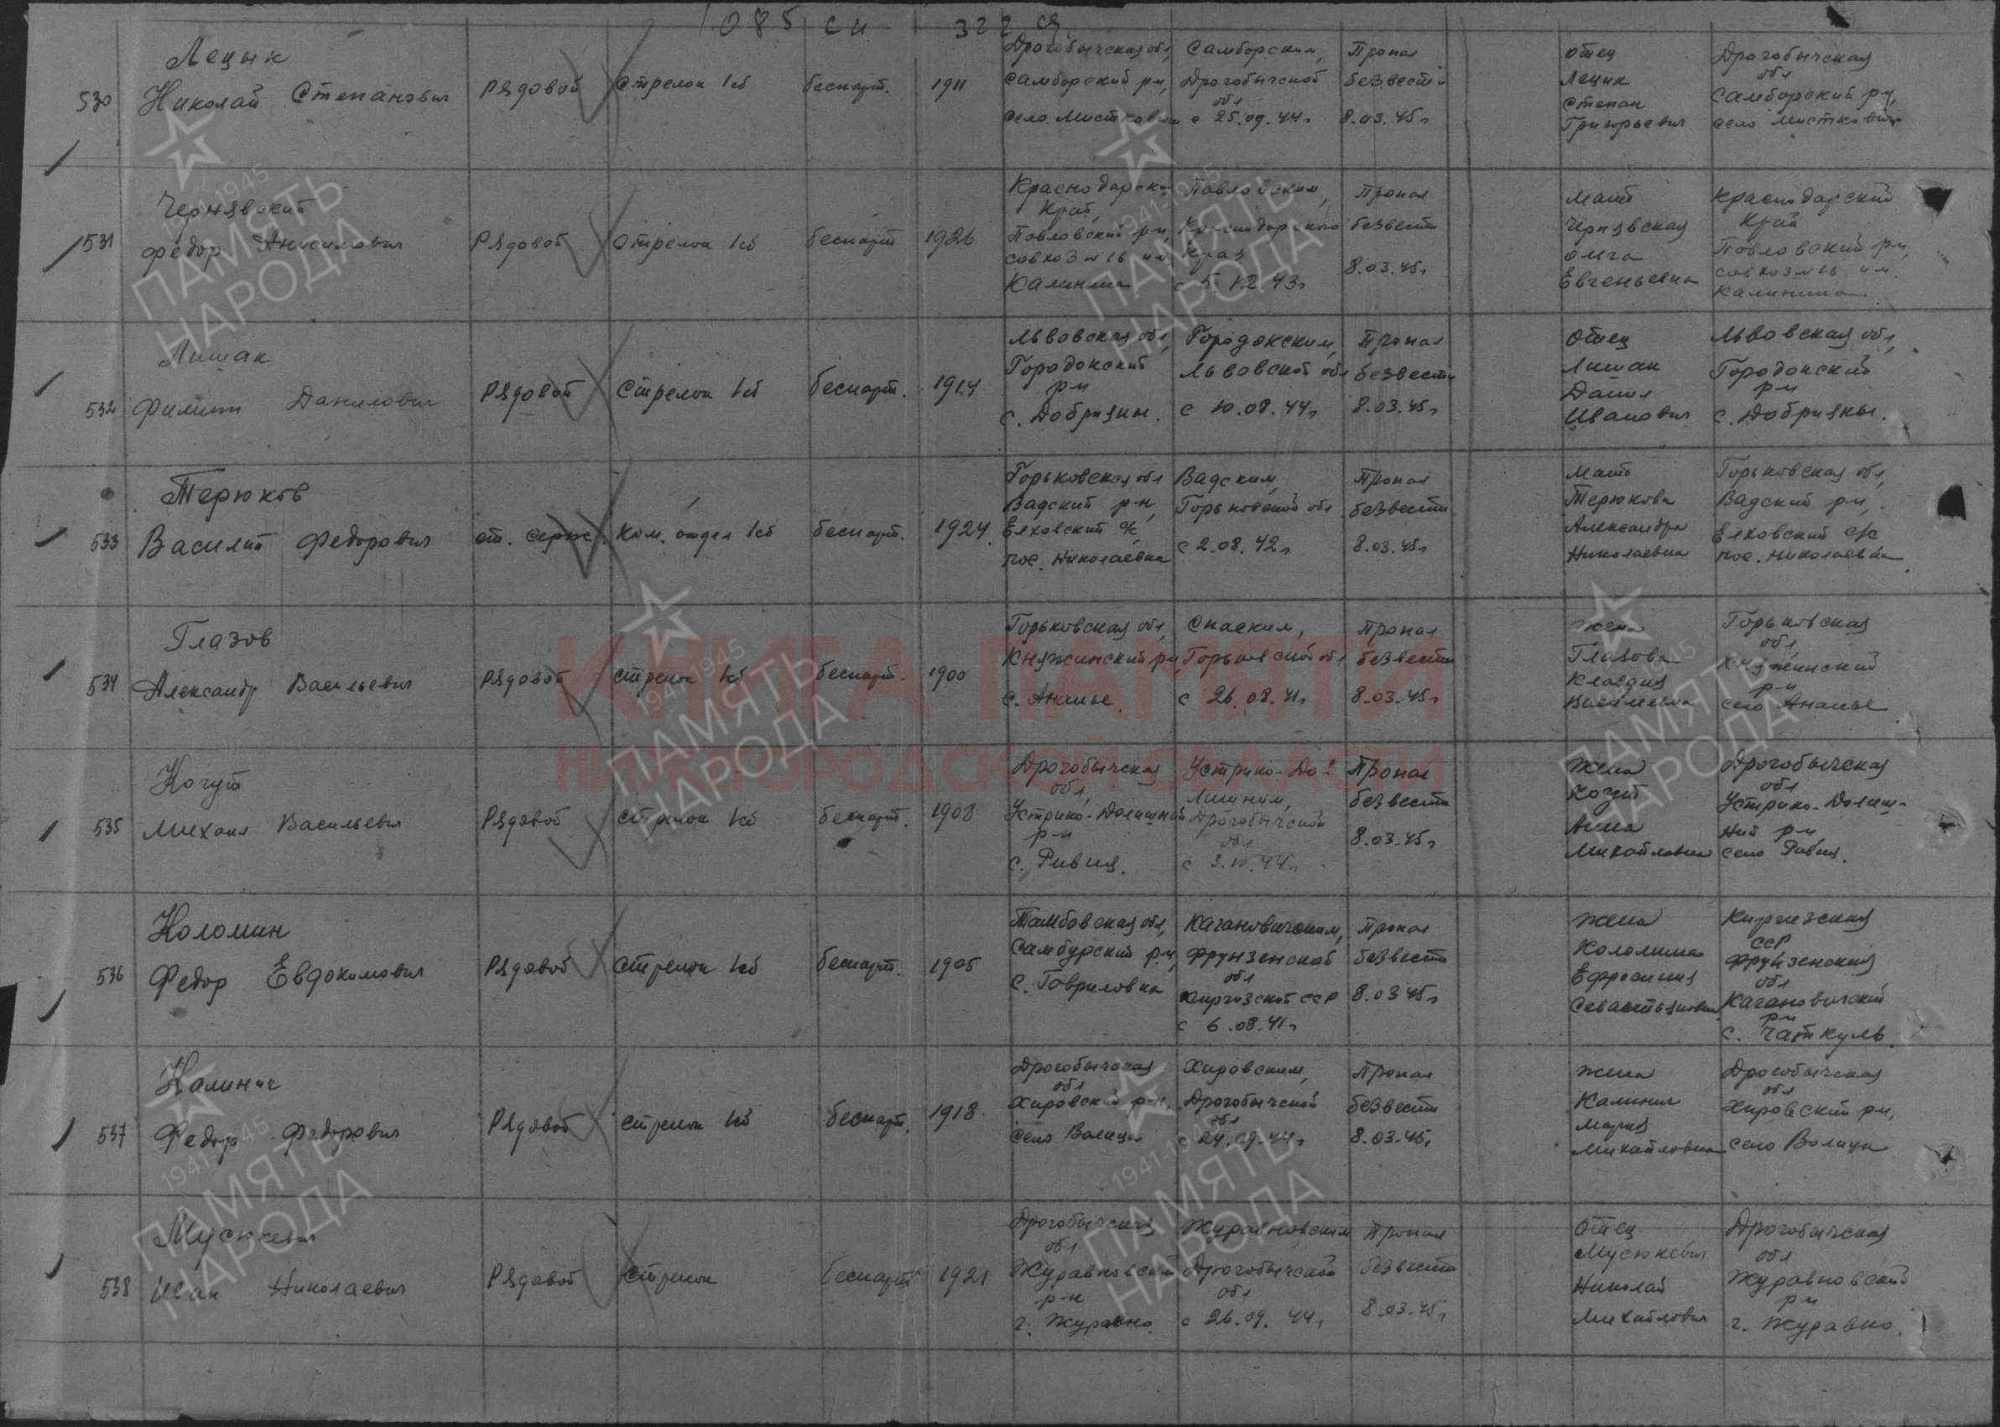 1085 сп 322 сд
530
Лецык
Николай Степанович
Рядовой
Стрелок 1сб
беспарт.
1911
Дрогобычская обл,
Самборский р-н,
село Мистковичи
Самборским,
Дрогобычской
обл
с 25.09.44г
Пропал
безвести
8.03.45г
отец
Лецик
Степан
Григорьевич
Дрогобычская
обл
Самборский р-н,
село Мисткович
531
Чернявский
Федор Анисимович
Рядовой
Стрелок 1сб
беспарт
1926
Краснодарский
Край,
Павловский р-н,
совхоз №16 им
Калинина
Павловским,
Краснодарского
края
с 5.12.43г
Пропал
безвести
8.03.45г.
мать
Чернявская
Ольга
Евгеньевна
Краснодарский
Край
Павловский р-н,
совхоз №16 им.
Калинина
532
Лишак
Филипп Данилович
Рядовой
Стрелок 1сб
беспарт.
1914
Львовская обл,
Городокский
р-н
с. Добряны.
Городокским,
Львовской обл
с 10.08.44г
Пропал
безвести
8.03.45г
Отец
Лишак
Данил
Иванович
Львовская обл,
Городокский
р-н
с. Добряны.
533
Терюков
Василий Федорович
ст. серж.
Ком. отдел 1сб
беспарт.
1924.
Горьковская обл
Вадский р-н,
Елховский с/с,
пос. Николаевка
Вадским,
Горьковской обл
с 2.08.42г
Пропал
безвести
8.03.45г
мать
Терюкова
Александра
Николаевна
Горьковская обл,
Вадский р-н,
Елховский с/с
пос. Николаевка.
534
Глазов
Александр Васильевич
Рядовой
Стрелок 1сб
беспарт.
1900
Горьковская обл,
Княжинский р-н,
с. Ананье.
Спаским,
Горьковской обл
с 26.08.41г
Пропал
безвести
8.03.45г
жена
Глазова
Клавдия
Горьковская
обл,
Княжинский
р-н
село Ананье
535
Когут
Михаил Васильевич
Рядовой
Стрелок 1сб
беспарт.
1908
Дрогобычская
обл,
Устрико-Долишний
р-н
с. Ривия.
Устрико-До=
Лишним,
Дрогобычской
обл
с 3.10.44г
Пропал
безвести
8.03.45г
Жена
Когут
Анна
Михайловна
Дрогобычская
обл
Устрико-Долиш-
ний р-н,
село Ривия.
536
Коломин
Федор Евдокимович
Рядовой
Стрелок 1сб
беспарт.
1905
Тамбовская обл,
Самбурский р-н,
с. Гавриловка
Кагановическим,
Фрунзенской
обл
Киргизской ССР
с 6.08.41г
Пропал
безвести
8.03.45г
Жена
Коломина
Ефросиния
Севастьяновна
Киргизская
ССР
Фрунзенская
обл
Кагановичский
р-н
с. Чаткуль.
537
Калинич
Федор Федорович
Рядовой
Стрелок 1сб
беспарт.
1918.
Дрогобычская
обл
Хировский р-н.
село Волица
Хировским,
Дрогобычской
обл
с 24.09.44г
Пропал
безвести
8.03.45г
Жена
Калинич
Мария
Михайловна
Дрогобычская
обл
Хировский р-н,
село Волица
538
Мусюкевич
Иван Николаевич
Рядовой
Стрелок
беспарт
1921
Дрогобычская
обл
Журавновский
р-н
г. Журавно.
Журавновским
Дрогобычской
обл
с 26.09.44г
Пропал
безвести
8.03.45г
Отец
Мусюкевич
Николай
Михайлович
Дрогобычская
обл
Журавновский
р-н
г. Журавно.
КНИГА ПАМЯТИ
НИЖЕГОРОДСКОЙ ОБЛАСТИ
1941-1945
ПАМЯТЬ
НАРОДА